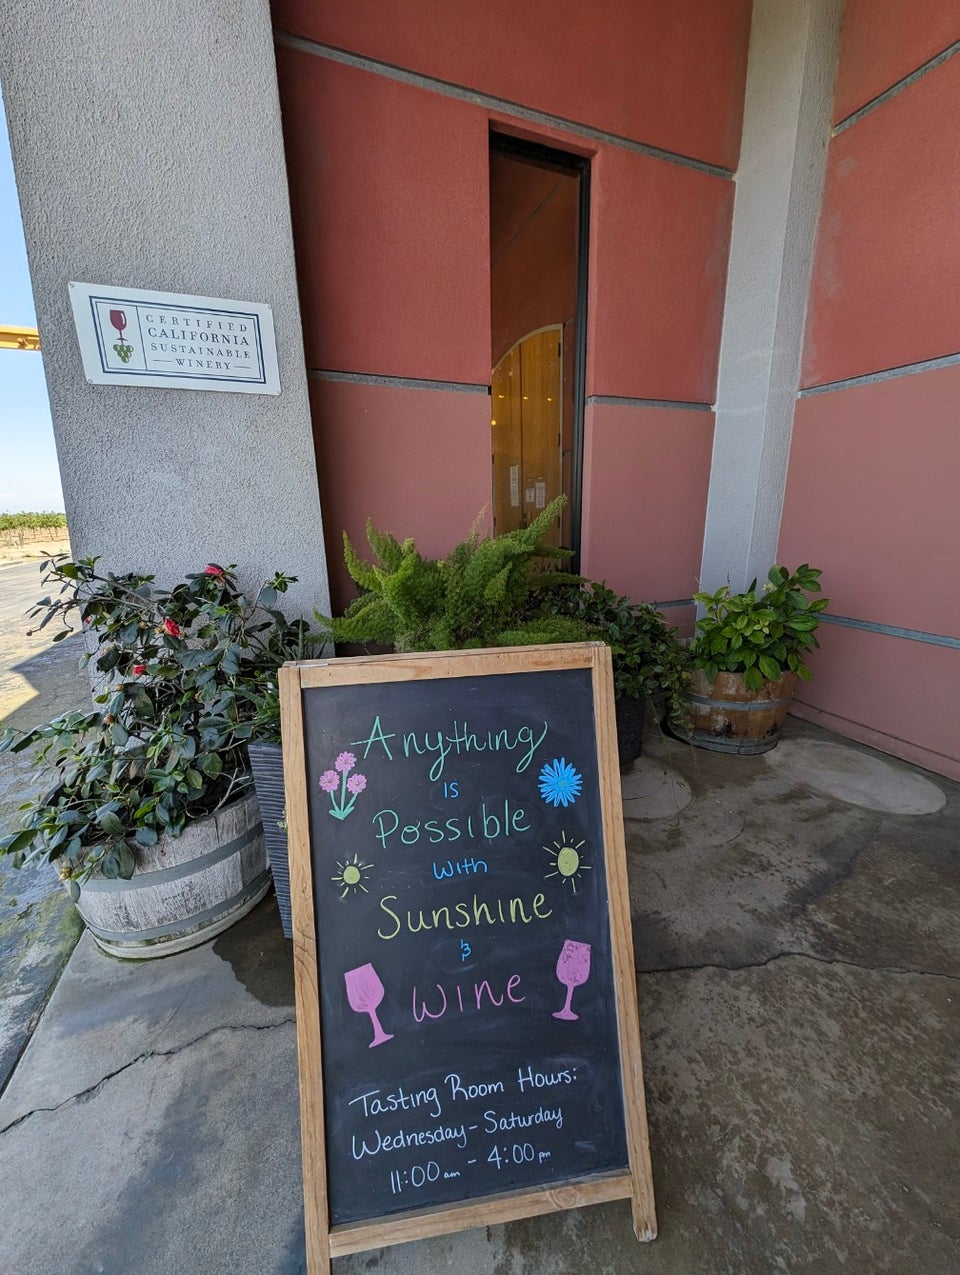 CERTIFIED
CALIFORNIA
SUSTAINABLE
WINERY
Anything
is
Possible
with
Sunshine
&
Wine
Tasting Room Hours:
Wednesday - Saturday
11:00 am - 4:00 pm